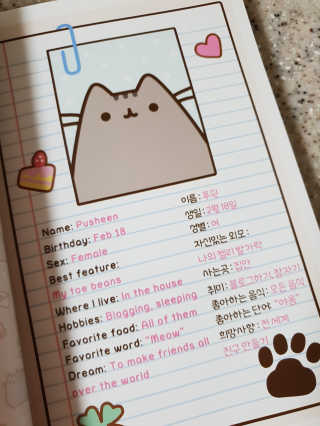 Name: Pusheen
Birthday: Feb 18
Sex: Female
Best feature:
My toe beans
Where I live: In the house
Hobbies: Blogging, sleeping
Favorite food: All of them
Favorite word: "Meow"
Dream: To make friends all
over the world
이름: 푸신
생일: 2월 18일
성별: 여
자신있는 외모:
나의 젤리 발가락
사는곳: 집안
취미: 블로그하기, 잠자기
좋아하는 음식: 모든 음식
좋아하는 단어: "야옹"
희망사항: 전 세계
친구 만들기